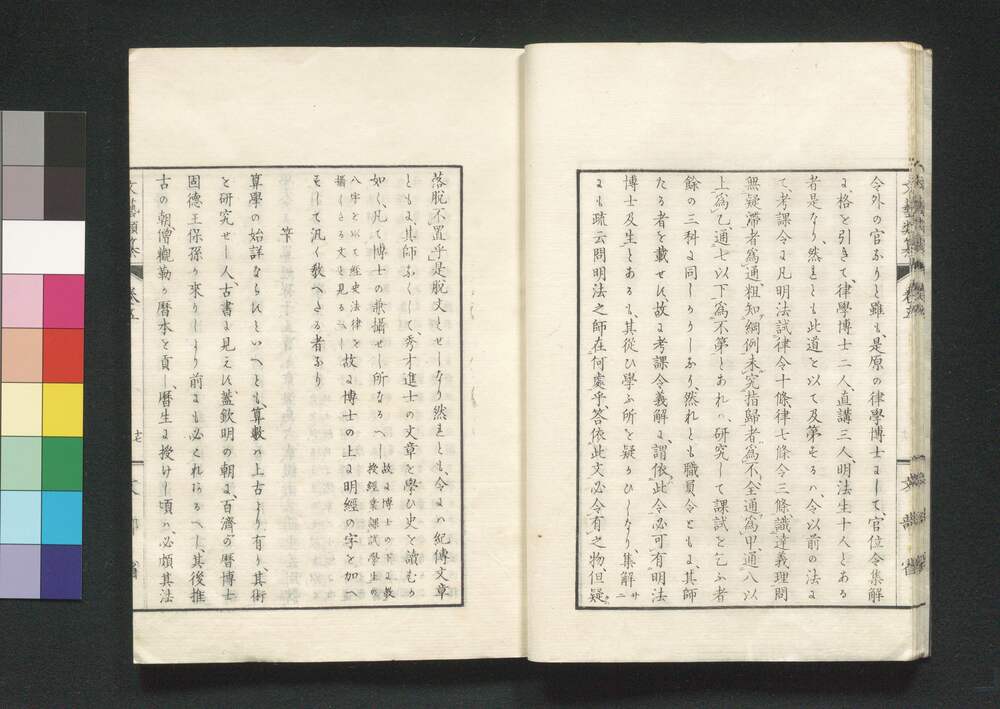 令外の官なりと雖も、是原の律學博士まして、官位令集解
ま、格を引きて、律學博士二人、直講三人、明法生十人とある
者是なり、然れとも此道を以て及第するハ、令以前の法ま
て、考課令ま凡明法試律令十條、律七條令三條、識達義理問
無疑滯者爲通、粗知綱例未究指歸者爲不、全通爲甲、通八以
上爲乙、通七以下爲不第とあれハ、研究して課試を乞ふ者
餘の三科ま同しかりしなり然れとも職員令ともま、其師
たる者を載せす、故ま考課令義解ま、謂依此令必可有明法
博士及生とあるも、其從ひ學ふ所を疑ひしなり、集解 廿二
まも疏云問明法之師在何處乎、答依此文必令有之物、但疑
落脫不置乎、是脫文とせしなり然れとも、今まハ紀傳文章
ともま其師なくして、秀才進士の文章を學ひ史を讀むか
如く、凡て博士の兼攝せし所なるへし 故ま博士の下ま敎授經業課試學生の
八字を以て經史法律を攝しとる文と見るへし 故ま博士の上ま明經の字を加へ
すして汎く敎へたる者なり
筭
算學の始詳ならすといへとも、算數ハ上古より有り、其術
を研究せし人、古書ま見えす、蓋欽明の朝ま、百濟の曆博士
固德王保孫か來りしより前まも必これあるへし、其後推
古の朝僧觀勒か曆本を貢し、曆生ま授けし頃ハ、必頗其法
文藝類纂 卷五
十七
文部省